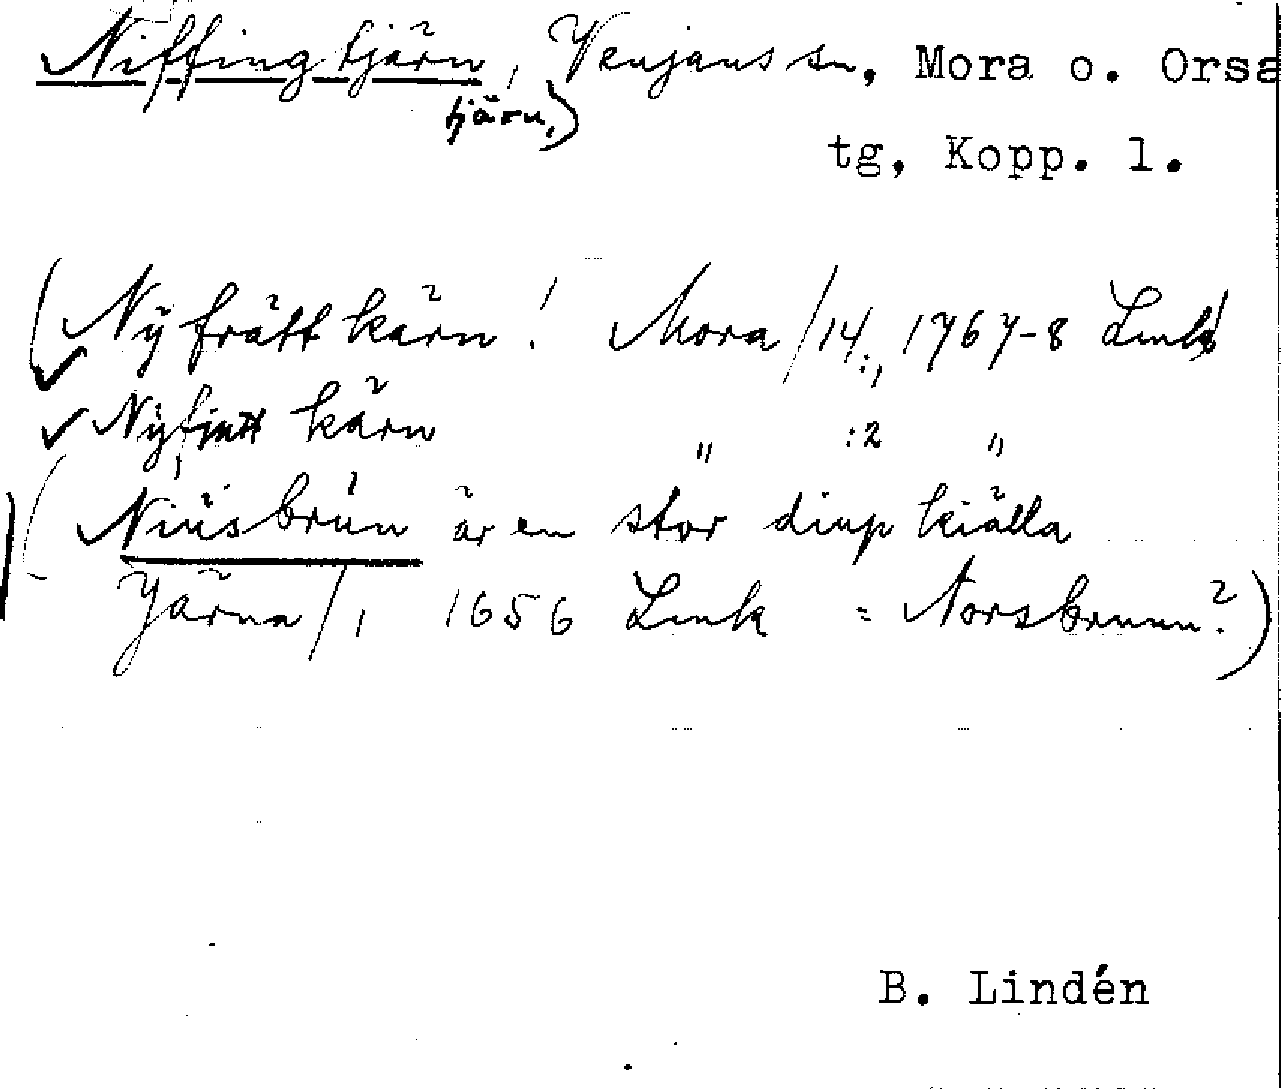 Niffingtjärn, Venjans sn, Mora o. Orsa
tjärn,)
tg, Kopp. l.
(Nÿfrätt kärn! Mora/14:, 1767-8 Lmk)
Nÿfjätt kärn " :2 "
(Niüsbrŭn är en stor diup kiälla
Järna/, 1656 Lmk = Norsbrunn?)
B. Lindén